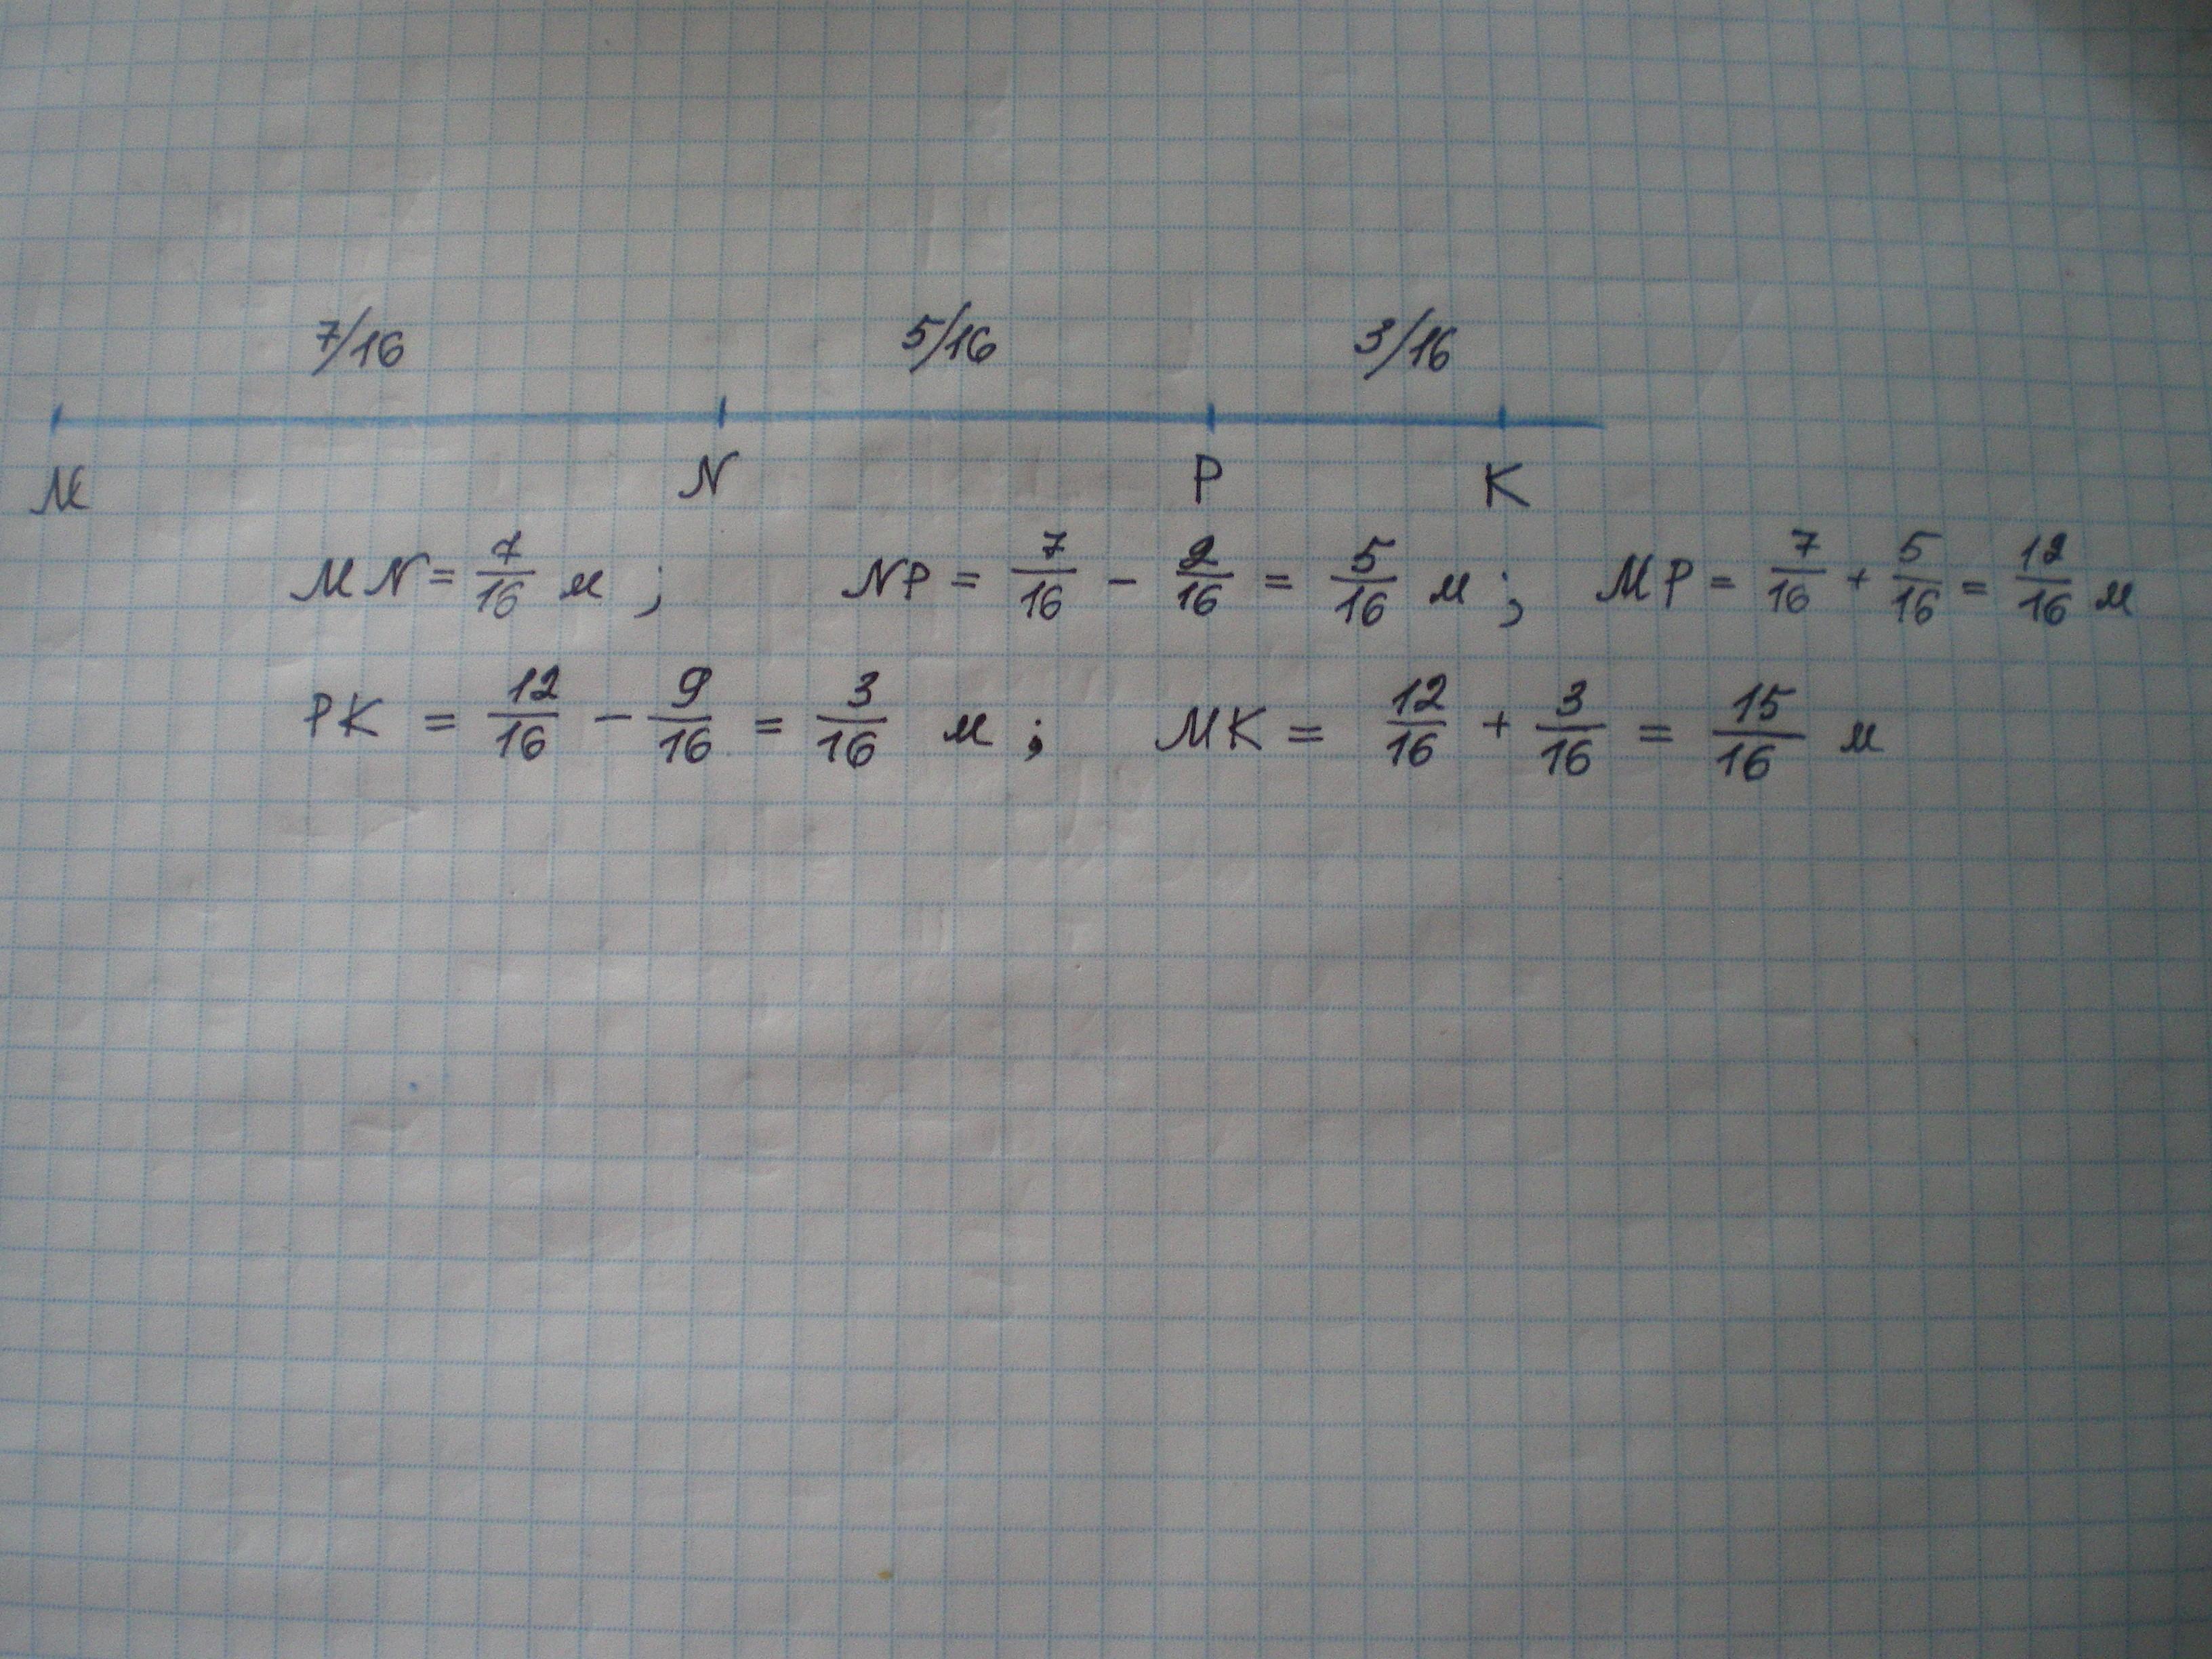 7/16 5/16 3/16
M N P K
MN = 7/16 м ; NP = 7/16 - 2/16 = 5/16 м ; MP = 7/16 + 5/16 = 12/16 м
PK = 12/16 - 9/16 = 3/16 м ; MK = 12/16 + 3/16 = 15/16 м